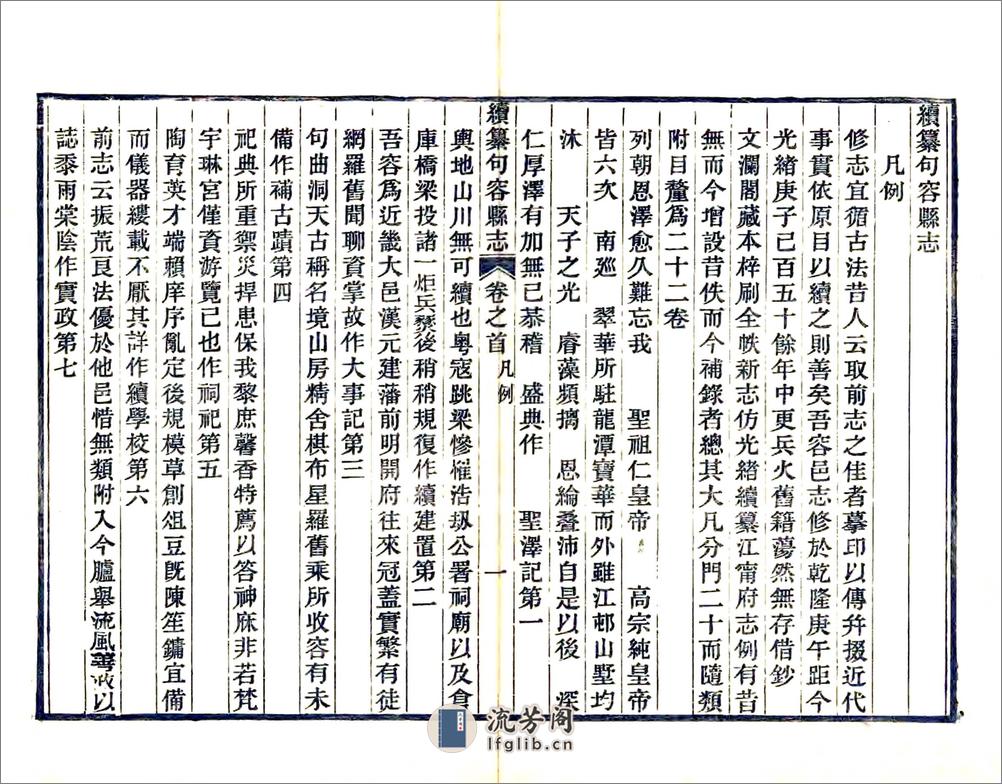 續纂句容縣志
凡例
修志宜循古法昔人云取前志之佳者摹印以傳幷掇近代
事實依原目以續之則善矣吾容邑志修於乾隆庚午距今
光緒庚子已百五十餘年中更兵火舊籍蕩然無存借鈔
文瀾閣藏本梓刷全帙新志仿光緒續纂江甯府志例有昔
無而今增設昔佚而今補錄者總其大凡分門二十而隨類
附目釐爲二十二卷
列朝恩澤愈久難忘我 聖祖仁皇帝 高宗純皇帝
皆六次 南巡 翠華所駐龍潭寶華而外雖江邨山墅均
沐 天子之光 睿藻頻摛 恩綸疊沛自是以後 深
仁厚澤有加無已恭稽 盛典作 聖澤記第一
續纂句容縣志 卷之首 凡例 一
輿地山川無可續也粵寇跳梁慘罹浩刼公署祠廟以及倉
庫橋梁投諸一炬兵燹後稍稍規復作續建置第二
吾容爲近畿大邑漢元建藩前明開府往來冠蓋實繁有徒
網羅舊聞聊資掌故作大事記第三
句曲洞天古稱名境山房精舍棋布星羅舊乘所收容有未
備作補古蹟第四
祀典所重禦災捍患保我黎庶馨香特薦以答神庥非若梵
宇琳宮僅資游覽已也作祠祀第五
陶育英才端賴庠序亂定後規模草創俎豆旣陳笙鏞宜備
而儀器縷載不厭其詳作續學校第六
前志云振荒良法優於他邑惜無類附入今臚舉流風善政以
誌黍雨棠陰作實政第七
流芳阁
lfglib.cn